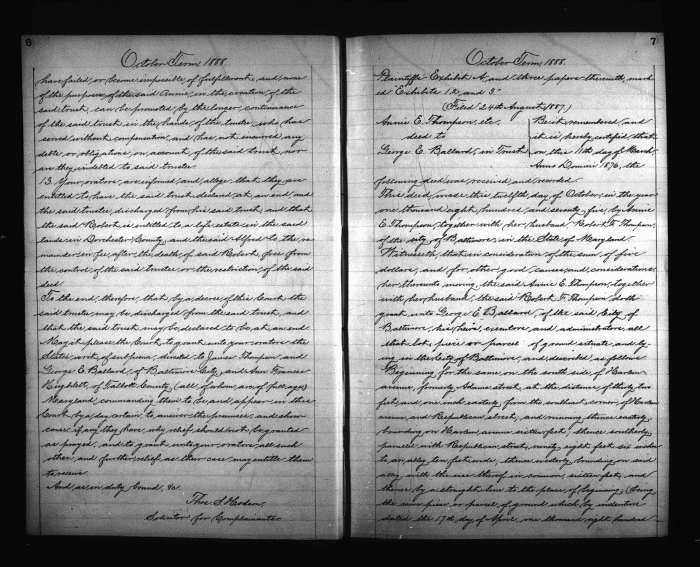 6
October Term, 1888.
have failed, or become impossible of fulfillment, and none
of the purposes of the said Annie, in the creation of the
said trust, can be promoted by the longer continuance
of the said trust in the hands of the trustee, who has
served without compensation, and has not incurred any
debts, or obligations, on account of the said trust, nor
are they indebted to said trustee.
13. Your orators are informed, and allege, that they are
entitled to have the said trust declared at an end, and
the said trustee, discharged from his said trust, and that
the said Robert, is entitled to a life estate in the said
lands in Dorchester County, and the said Alfred to the re-
mainder in fee, after the death of said Robert, free from
the control of the said trustee or the restriction of the said
deed.
To the end, therefore, that by a decree of this Court, the
said trustee, may be discharged from the said trust, and
that the said trust may be declared to be at an end
May it please the Court, to grant unto your orators the
States writ of subpoena, directed to James Thompson and
George E. Ballard, of Baltimore City, and Ann Frances
Hughlett, of Talbot County, (all of whom are of full age)
Maryland, commanding them to be, and appear, in this
Court by a day certain to answer the premises, and show
cause if any they have, why relief should not be granted
as prayed, and to grant unto your orators all such
other, and further relief, as their case may entitle them
to receive.
And as in duty bound, &c.
Thos. S. Hodson,
Solicitor for Complainants.
7
October Term, 1888.
Plaintiffs Exhibit A, and three papers therewith, mark-
ed "Exhibits 1, 2, and 3"
(Filed 24th August, 1887,)
Annie E. Thompson, etc. Be it remembered, and
deed to it is hereby certified, that
George E. Ballard, in Trust on this 11th day of March
Anno Domini 1876, the
following deed was received, and recorded
This deed, made this twelfth, day of October, in the year
one thousand, eight hundred, and seventy-five, by Annie
E. Thompson, together with her husband Robert F. Thompson,
of the city of Baltimore, in the State of Maryland
Witnesseth, that in consideration of the sum of five
dollars, and for other good causes, and considerations,
her thereunto moving, the said Annie E. Thompson, together
with her husband, the said Robert F. Thompson doth
grant unto George E. Ballard, of the said City of
Baltimore, his heirs, executors, and administrators, all
that lot, piece or parcel of ground situate, and ly-
ing in the City of Baltimore, and described as follows
Beginning for the same on the south side of Harlem
avenue, formerly Adams street, at the distance of thirty two
feet, and one inch easterly, from the southeast corner of Harlem
avenue, and Republican street, and running thence easterly
bounding on Harlem avenue, sixteen feet, thence southerly
parallel with Republican street, ninety eight feet six inches
to an alley ten feet wide, thence westerly bounding on said
alley with the use thereof in common, sixteen feet, and
thence by a straight line to the place of beginning, (being
the same piece or parcel of ground which by indenture
dated the 17th day of April, one thousand, eight hundred